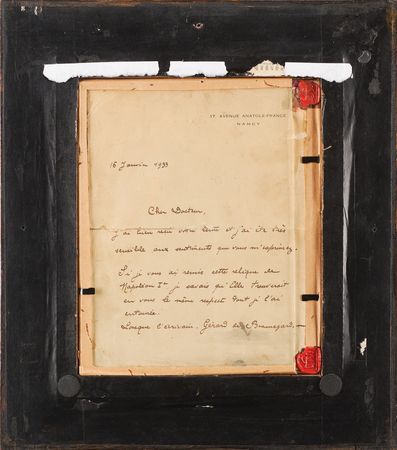 17, AVENUE ANATOLE-FRANCE
NANCY
16 Janvier 1933
Cher Docteur,
J'ai bien reçu votre lettre et j'ai été très
sensible aux sentiments que vous m'exprimez.
Si je vous ai remis cette relique de
Napoléon Ier je savais qu'elle trouverait
en vous le même respect dont je l'ai
entourée.
Lorsque l'écrivain, Gérard de Beauregard,